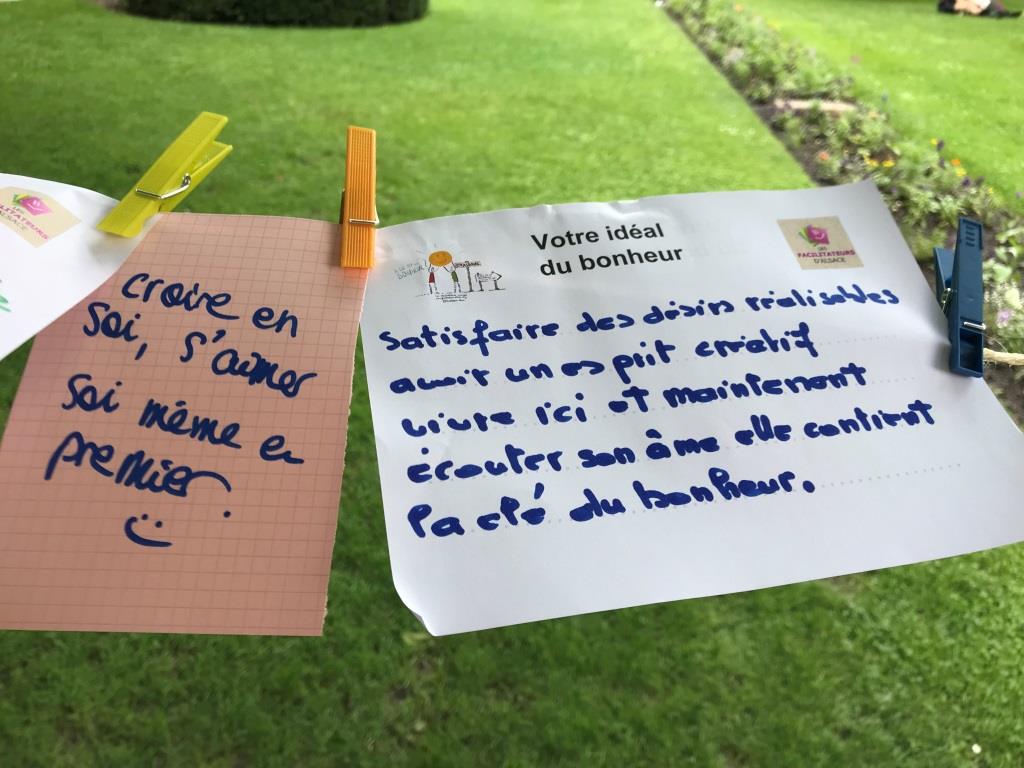 LES
FACILITATEURS
D'ALSACE
croire en
soi, s'aimer
soi même en
premier.
Votre idéal
du bonheur
LES
FACILITATEURS
D'ALSACE
satisfaire des désirs réalisables
avoir un esprit créatif
vivre ici et maintenant
écouter son âme elle contient
la clé du bonheur.